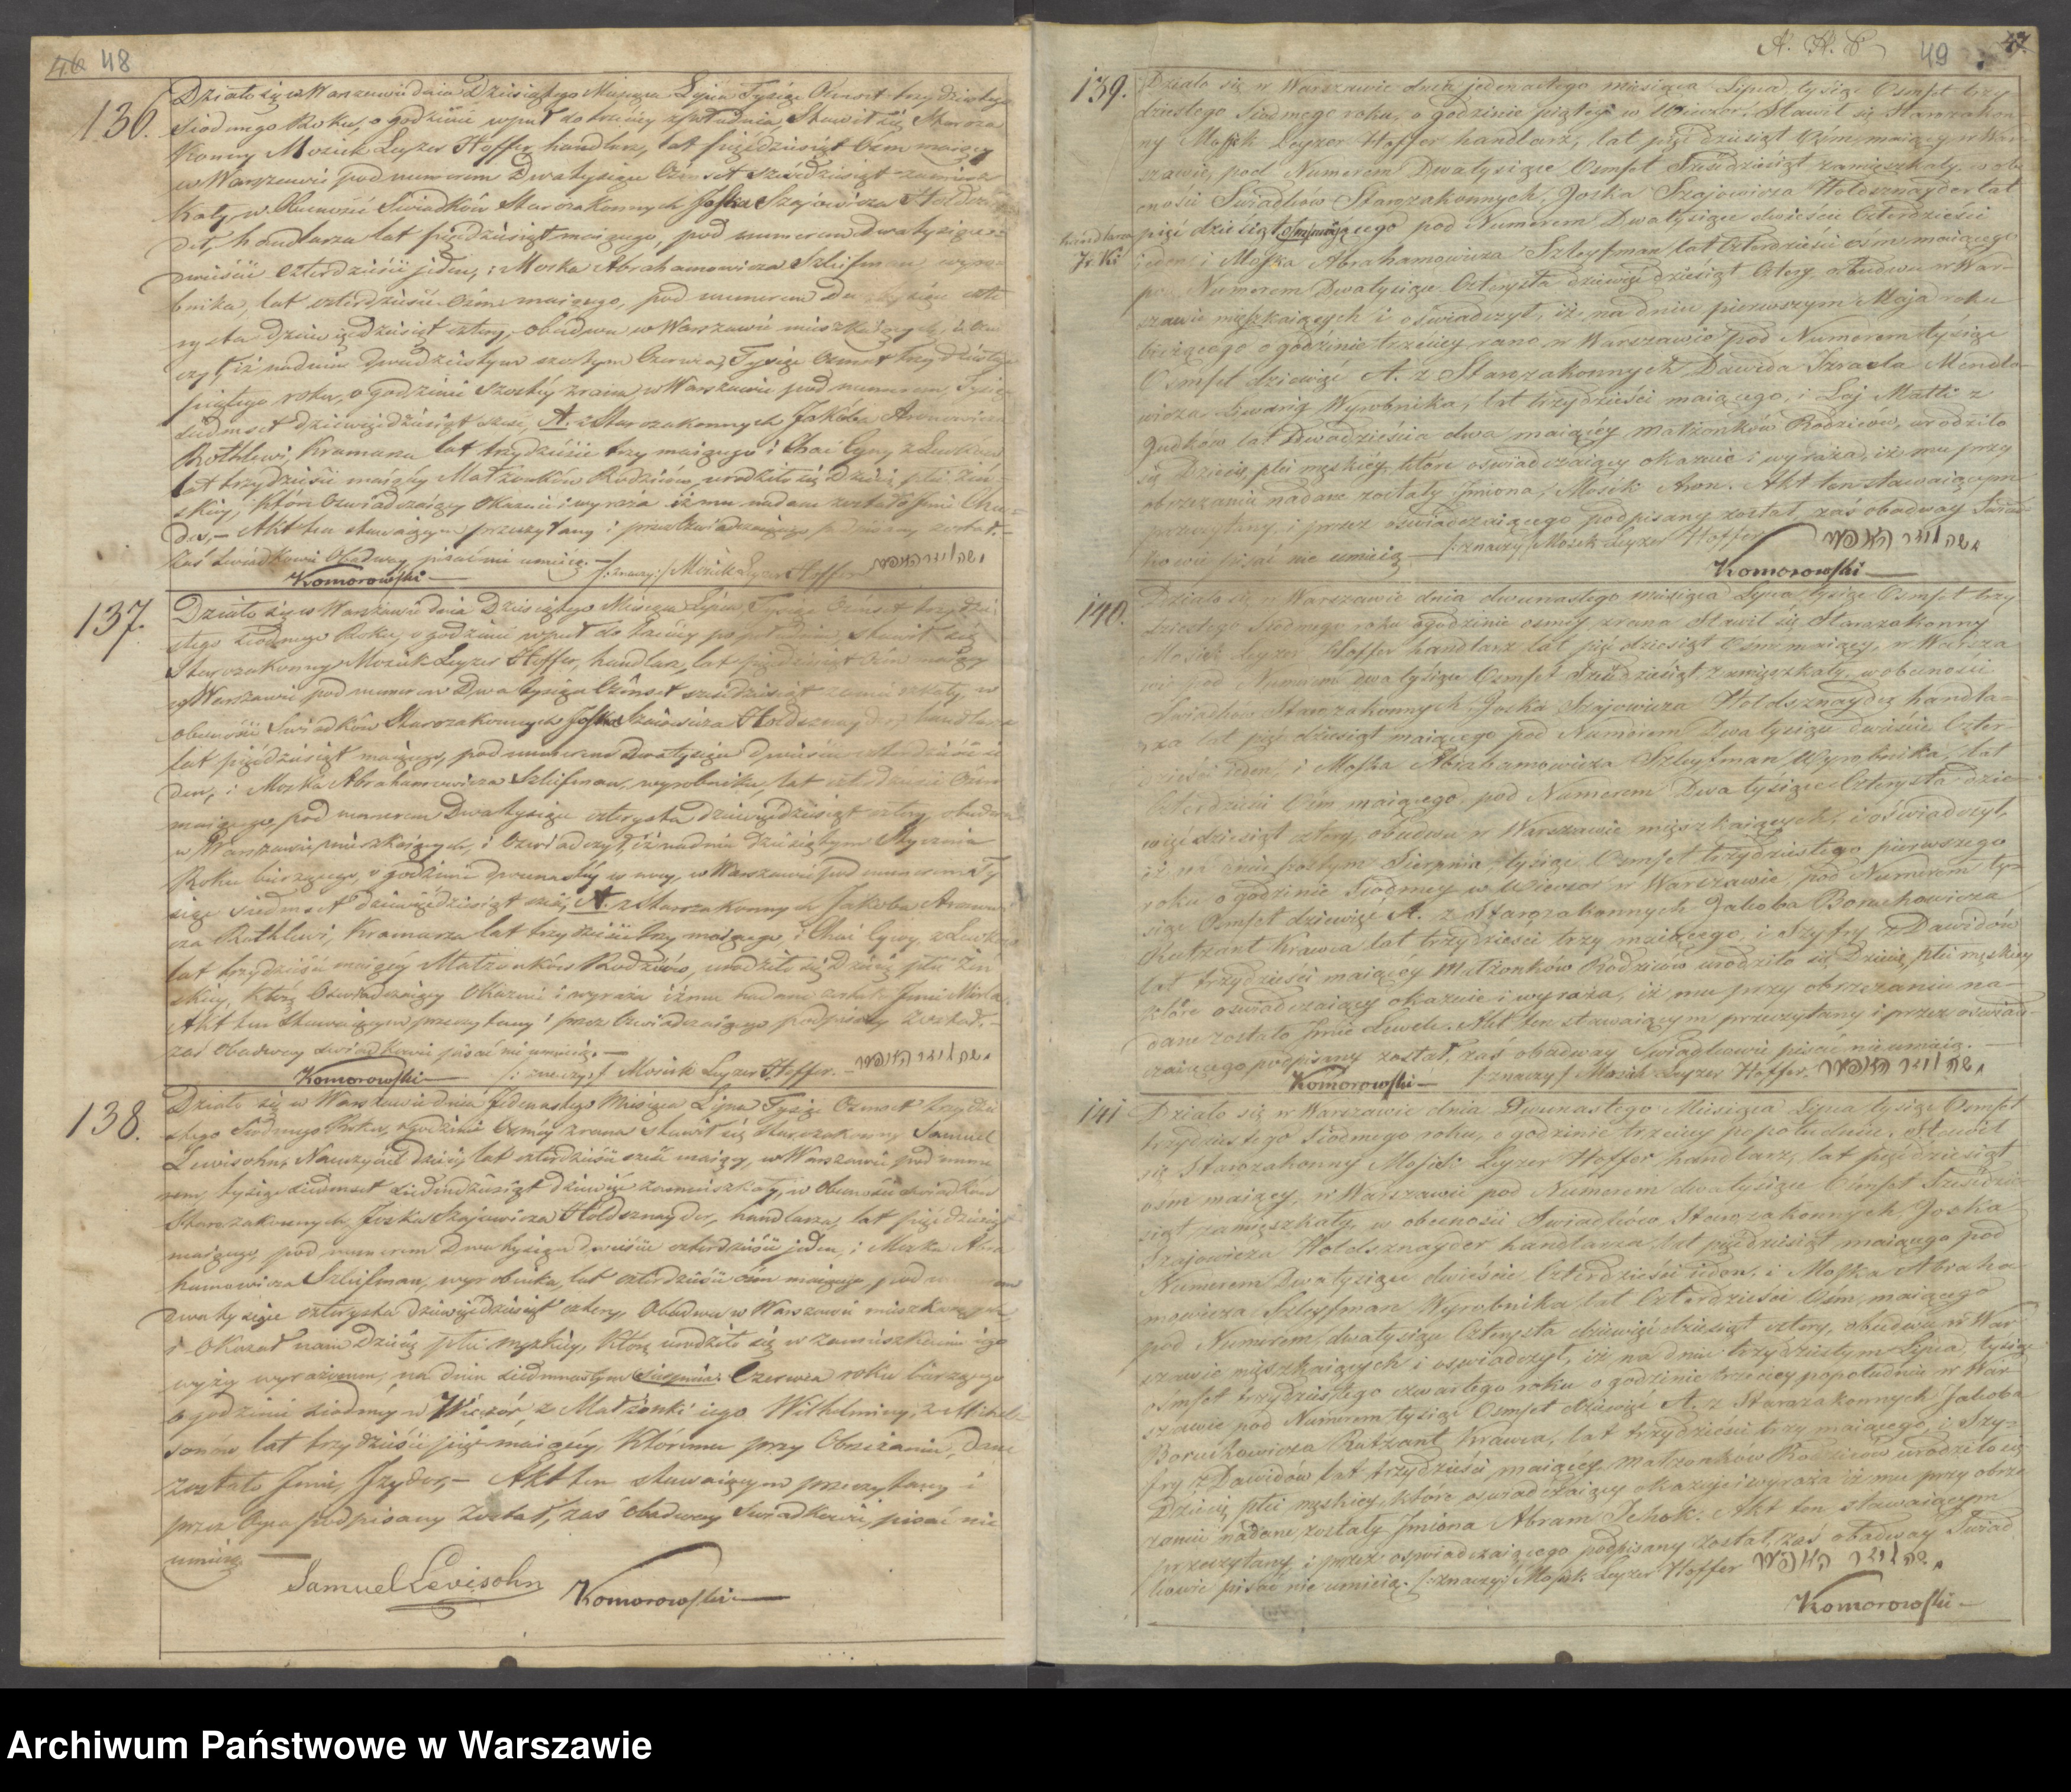 46 48
136. Działo się w Warszawie dnia Dziesiątego Miesiąca Lipca Tysiąc Ośmset trzydziestego
siodmego Roku, o godzinie wpuł do trzeciey z południa, Stawił się Staroza
konny Mosiek Leyzer Hoffer, handlarz, lat pięćdziesiąt Ośm maiący
w Warszawie pod numerem Dwatysiące Ośmset sześćdziesiąt zamiesz
kały, w Obecności Swiadków Starozakonnych Joska Szajowicza
handlarza lat pięćdziesiąt maiącego, pod numerem Dwatysiące
dwieście czterdzieści jeden, i Moska Abrahamowicza Szlifman wyro
bnika, lat czterdzieści Ośm maiącego, pod numerem Dwatysiące czte
rysta dziewięćdziesiąt cztery, obudwu w Warszawie
czył, iż na dniu dwudziestym szóstym Czerwca, Tysiąc Ośmset trzydziestego
piątego roku, o godzinie szostéy zrana w Warszawie pod numerem Tysiąc
siedmset dziewięćdziesiąt sześć, A. z Starozakonnych Jakóba Aronowicza
Rothlewi, Kramarza lat trzydzieście trzy maiącego i Chai
lat trzydzieści maiącéy Małżonków Rodziców, urodziło się Dziecię płci żeń
skiey, które Oswiadczaiący Okazuie i wyraża iż mu nadane zostało Jmie
Akt ten stawaiącym przeczytany i przez Oswiadczaiącego podpisany został.
zaś Swiadkowie Obadway pisać nie umieią. — /:znaczy:/ Mosiek Leyzer Hoffer
Komorowski
137. Działo się w Warszawie dnia Dziesiątego Miesiąca Lipca Tysiąc Ośmset trzydzie
stego siódmego Roku, o godzinie wpuł do trzeciéy po południu, stawił się
Starozakonny Mosiek Leyzer Hoffer, handlarz, lat pięćdziesiąt Ośm maiący
w Warszawie pod numerem Dwatysiące Ośmset sześćdziesiąt zamieszkały, w
obecności Swiadków Starozakonnych Joska Szaiowicza Holdsznayder, handlarza
lat pięćdziesiąt maiącego, pod numerem Dwatysiące dwieście czterdzieści ie
den, i Moska Abrahamowicza Szlifman, wyrobnika, lat czterdzieści Ośm
maiącego, pod numerem Dwatysiące czterysta dziewięćdziesiąt cztery, obudwu
w Warszawie mieszkaiących, i Oswiadczył, iż na dniu dziesiątym Stycznia
Roku bieżącego, o godzinie dwunastéy w nocy, w Warszawie pod numerem Ty
siąc siedmset dziewięćdziesiąt sześć, A. z Starozakonnych Jakóba Aronowi
cza Rothlewi, Kramarza lat trzydzieście trzy maiącego, i Chai
lat trzydzieści maiącéy Małżonków Rodziców, urodziło się Dziecię płci żeń
skiey, które Oswiadczaiący Okazuie i wyraża iż mu nadane zostało Jmie
Akt ten Stawaiącym przeczytany i przez Oswiadczaiącego podpisany został.
zaś obadway swiadkowie pisać nie umieią. —
Komorowski /:znaczy:/ Mosiek Leyzer Hoffer.
138. Działo się w Warszawie dnia Jedenastego Miesiąca Lipca Tysiąc Ośmset trzydzie
stego Siodmego Roku, o godzinie Osméy zrana stawił się Starozakonny Samuel
Lewisohn, Nauczyciel dzieci, lat czterdzieści sześć maiący, w Warszawie pod nume
rem tysiąc siedmset siedmdziesiąt dziewięć zamieszkały, w Obecności swiadków
Starozakonnych Joska Szajowicza Holdsznayder, handlarza, lat pięćdziesiąt
maiącego, pod numerem Dwatysiące dwieście czterdzieści jeden, i Moska Abra
hamowicza Szlifman, wyrobnika, lat czterdzieści ośm maiącego, pod numerem
dwatysiące czterysta dziewięćdziesiąt cztery, Obudwu w Warszawie
i Okazał nam Dziecię płci męzkiey, które urodziło się w zamieszkaniu iego
wyżey wyrażonem, na dniu siedmnastym Czerwca roku bieżącego
o godzinie siodméy w Wieczór, z Małżonki iego Wilhelminy, z Michel
sonów lat trzydzieści pięć maiącéy, któremu przy Obrzezaniu, dane
zostało Jmie, Jzydor, — Akt ten stawaiącym przeczytany i
przez Oyca podpisany został, zaś obadway Swiadkowie, pisać nie
umieią —
Samuel Levisohn Komorowski
A. K. C 49 47
139. Działo się w Warszawie dnia jedenastego miesiąca Lipca, tysiąc Osmset trzy
dziestego Siodmego roku, o godzinie piątey w Wieczor, Stawił się Starozakon
ny Mosiek Leyzer Hoffer, handlarz, lat pięćdziesiąt Ośm, maiący, w War
szawie, pod Numerem Dwatysiące Osmset Sześćdziesiąt zamieszkały, w obe
cności Swiadków Starozakonnych, Joska Szajowicza Holdsznayder lat
handlarza pięćdziesiąt maiącego pod Numerem Dwatysiące dwieście Czterdzieści
ieden, i Moska Abrahamowicza Szleyfman, lat Czterdzieści ośm, maiącego
pod Numerem Dwatysiące Czterysta dziewięćdziesiąt Cztery, obudwu w War
szawie mieszkaiących i oświadczył, iż na dniu pierwszym Maja roku
bieżącego o godzinie trzeciey rano w Warszawie pod Numerem tysiąc
Osmset dziewięć A. z Starozakonnych Dawida Izraela Mendlo
wicza Wyrobnika, lat trzydzieści maiącego, i Łaj Matki z
Judków lat dwadzieścia dwa maiącéy Małżonków Rodziców, urodziło
się Dziecię płci męskiéy, które oswiadczaiący okazuie i wyraża, iż mu przy
obrzezaniu nadane zostały Jmiona, Mosiek Aron. Akt ten stawaiącym
przeczytany i przez oswiadczaiącego podpisany został, zaś obadway Swiad
kowie pisać nie umieią — /:znaczy:/ Mosiek Leyzer Hoffer
Komorowski
140. Działo się w Warszawie dnia dwunastego miesiąca Lipca, tysiąc Osmset trzy
dziestego Siodmego roku o godzinie osmey zrana Stawił się Starozakonny
Mosiek Leyzer Hoffer handlarz lat pięćdziesiąt Ośm maiący, w Warsza
wie pod Numerem dwatysiące Osmset Sześćdziesiąt zamieszkały, w obecności
Swiadków Starozakonnych, Joska Szajowicza Holdsznayder handla
rza lat pięćdziesiąt maiącego pod Numerem Dwatysiące dwieście Czter
dzieści ieden, i Moska Abrahamowicza Szleyfman Wyrobnika, lat
Czterdzieści Ośm maiącego, pod Numerem Dwatysiące Czterysta dzie
więćdziesiąt cztery, obudwu w Warszawie mieszkaiących, i oświadczył,
iż na dniu szostym Sierpnia, tysiąc Osmset trzydziestego pierwszego
roku o godzinie Siodmey w Wieczor w Warszawie, pod Numerem ty
siąc Osmset dziewięć A. z Starozakonnych Jakoba Boruchowicza
Rutzant Krawca lat trzydzieści trzy maiącego, i Szyfry z Dawidów
lat trzydzieści maiącéy Małżonków Rodziców urodziło się Dziecię płci męskiey
które oswiadczaiący okazuie i wyraża, iż mu przy obrzezaniu na
dane zostało Jmie Lewek. Akt ten stawaiącym przeczytany i przez oswiad
czaiącego podpisany został, zaś obadway Swiadkowie pisać nie umieią. —
Komorowski /:znaczy:/ Mosiek Leyzer Hoffer.
141 Działo się w Warszawie dnia Dwunastego Miesiąca Lipca tysiąc Osmset
trzydziestego Siodmego roku, o godzinie trzeciey popołudniu. Stawił
się Starozakonny Mosiek Leyzer Hoffer handlarz, lat pięćdziesiąt
osm maiący, w Warszawie pod Numerem dwatysiące Osmset Sześćdzie
siąt zamieszkały, w obecności Swiadków Starozakonnych, Joska
Szajowicza Holdsznayder handlarza lat pięćdziesiąt maiącego pod
Numerem Dwatysiące dwieście Czterdzieści ieden, i Moska Abraha
mowicza Szleyfman Wyrobnika lat Czterdzieści Ośm, maiącego
pod Numerem dwatysiące Czterysta dziewięćdziesiąt cztery, obudwu w War
szawie mieszkaiących i oswiadczył, iż na dniu trzydziestym Lipca, tysiąc
osmset trzydziestego czwartego roku o godzinie trzeciey popołudniu w War
szawie pod Numerem tysiąc Osmset dziewięć A. z Starozakonnych Jakoba
Boruchowicza Rutzant Krawca, lat trzydzieści trzy maiącego, i Szy
fry z Dawidów lat trzydzieści maiącéy, Małżonków Rodziców urodziło się
Dziecię płci męskiey, które oswiadczaiący okazuie i wyraża iż mu przy obrze
zaniu nadane zostały Jmiona Abram Jchok. Akt ten stawaiącym
przeczytany, i przez oswiadczaiącego podpisany został, zaś obadway Swiad
kowie pisać nie umieią. /:znaczy:/ Mosiek Leyzer Hoffer
Komorowski
Archiwum Państwowe w Warszawie